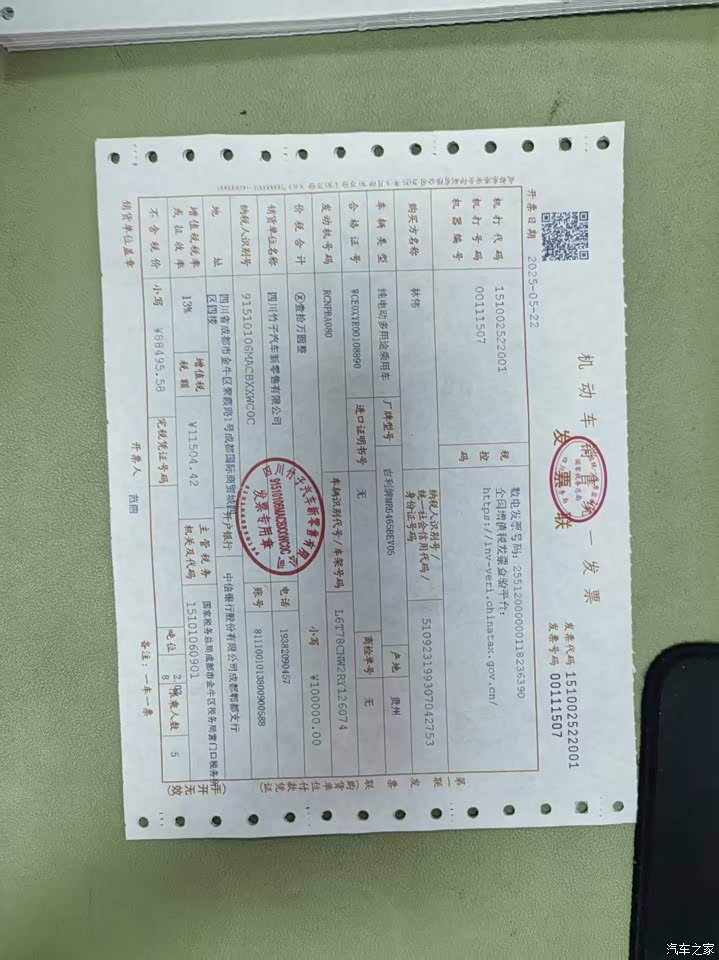 机动车销售统一发票
发票联
发票代码 151002522001
发票号码 00111507
开票日期 2025-05-22
数电发票号码：25512000000118236390
全国增值税发票查验平台：
https://inv-veri.chinatax.gov.cn/
机打代码 151002522001
机打号码 00111507
机器编号
税控码
购买方名称 林伟
纳税人识别号/
统一社会信用代码/
身份证号码
510923199307042753
车辆类型 纯电动多用途乘用车
厂牌型号 吉利牌MR6465BEV05
产地 贵州
合格证号 WCE0XYR00108890
进口证明书号 无
商检单号 无
发动机号码 RCNPBA080
车辆识别代号/车架号码 L6T78CNW2RY126074
价税合计 ⊗壹拾万圆整
小写 ¥100000.00
销货单位名称 四川竹子汽车新零售有限公司
电话 19382090457
纳税人识别号 91510106MACBXXWC0C
账号 8111001013800900688
地址 四川省成都市金牛区聚霞路1号成都国际商贸城
区四楼
开户银行 中信银行股份有限公司成都郫都支行
增值税税率
或征收率
13%
增值税
税额
¥11504.42
主管税务
机关及代码
国家税务总局成都市金牛区税务局营门口税务所
15101060901
不含税价 小写 ¥88495.58
完税凭证号码
吨位
限乘人数 5
销货单位盖章
开票人 范雨
备注：一车一票
第一联 发票联（购货单位付款凭证）（手开无效）
四川竹子汽车新零售有限公司
91510106MACBXXWC0C
发票专用章
汽车之家